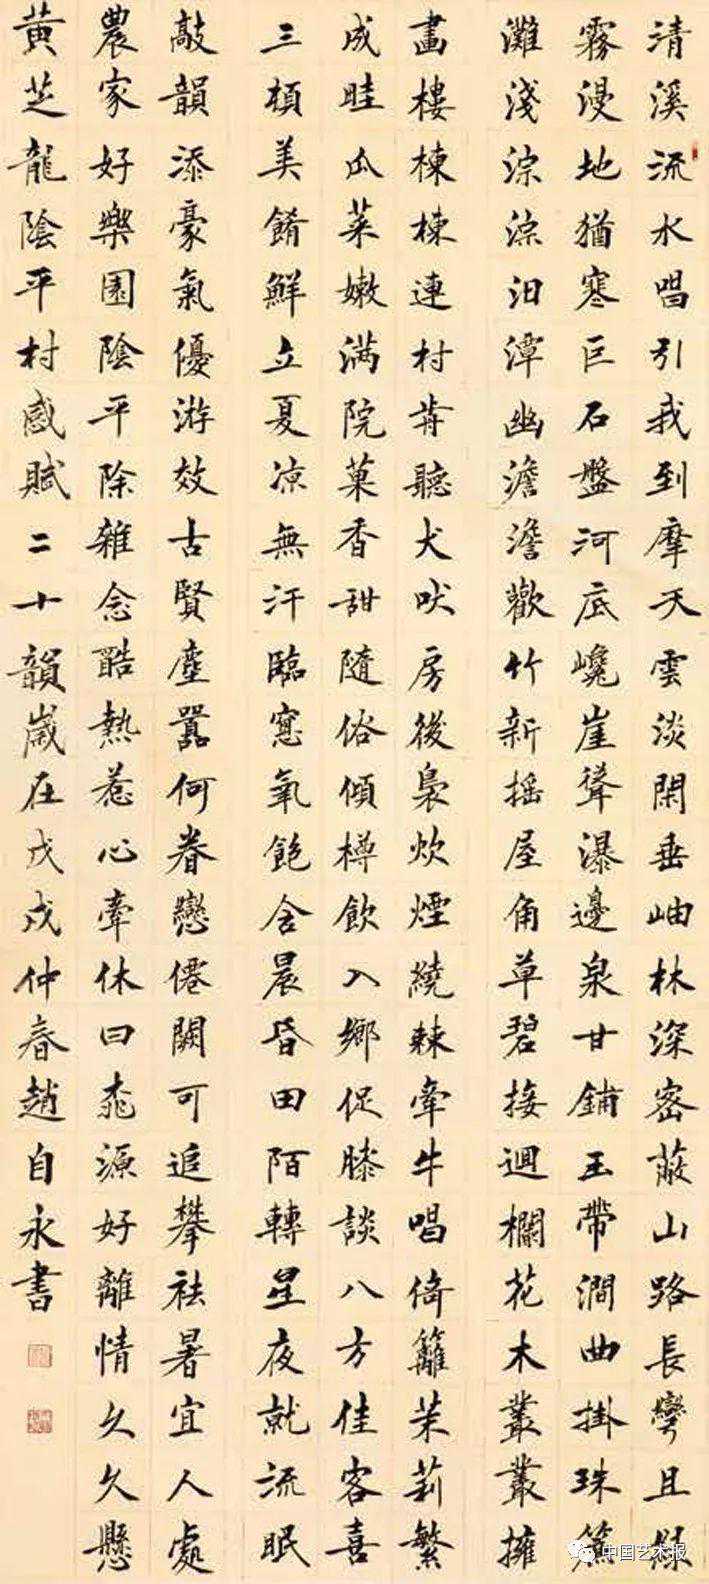 清溪流水唱引我到摩天雲淡閑垂岫林深密蔽山路長彎且
霧漫地猶寒巨石盤河底巉崖聳瀑邊泉甘鋪玉帶澗曲掛珠簾
灘淺淙淙汩潭幽澹澹歡竹新搖屋角草碧接迴欄花木叢叢擁
畫樓棟棟連村前聽犬吠房後裊炊煙繞棘牽牛唱倚籬茉莉繁
成畦瓜菜嫩滿院菓香甜隨俗傾樽飲入鄉促膝談八方佳客喜
三頓美餚鮮立夏涼無汗臨窗氧飽含晨昏田陌轉星夜就流眠
敲韻添豪氣優游效古賢塵囂何眷戀僊闕可追攀祛暑宜人處
農家好樂園陰平除雜念酷熱惹心牽休曰桃源好離情久久懸
黃芝龍陰平村感賦二十韻歲在戊戌仲春趙自永書
中国艺术报